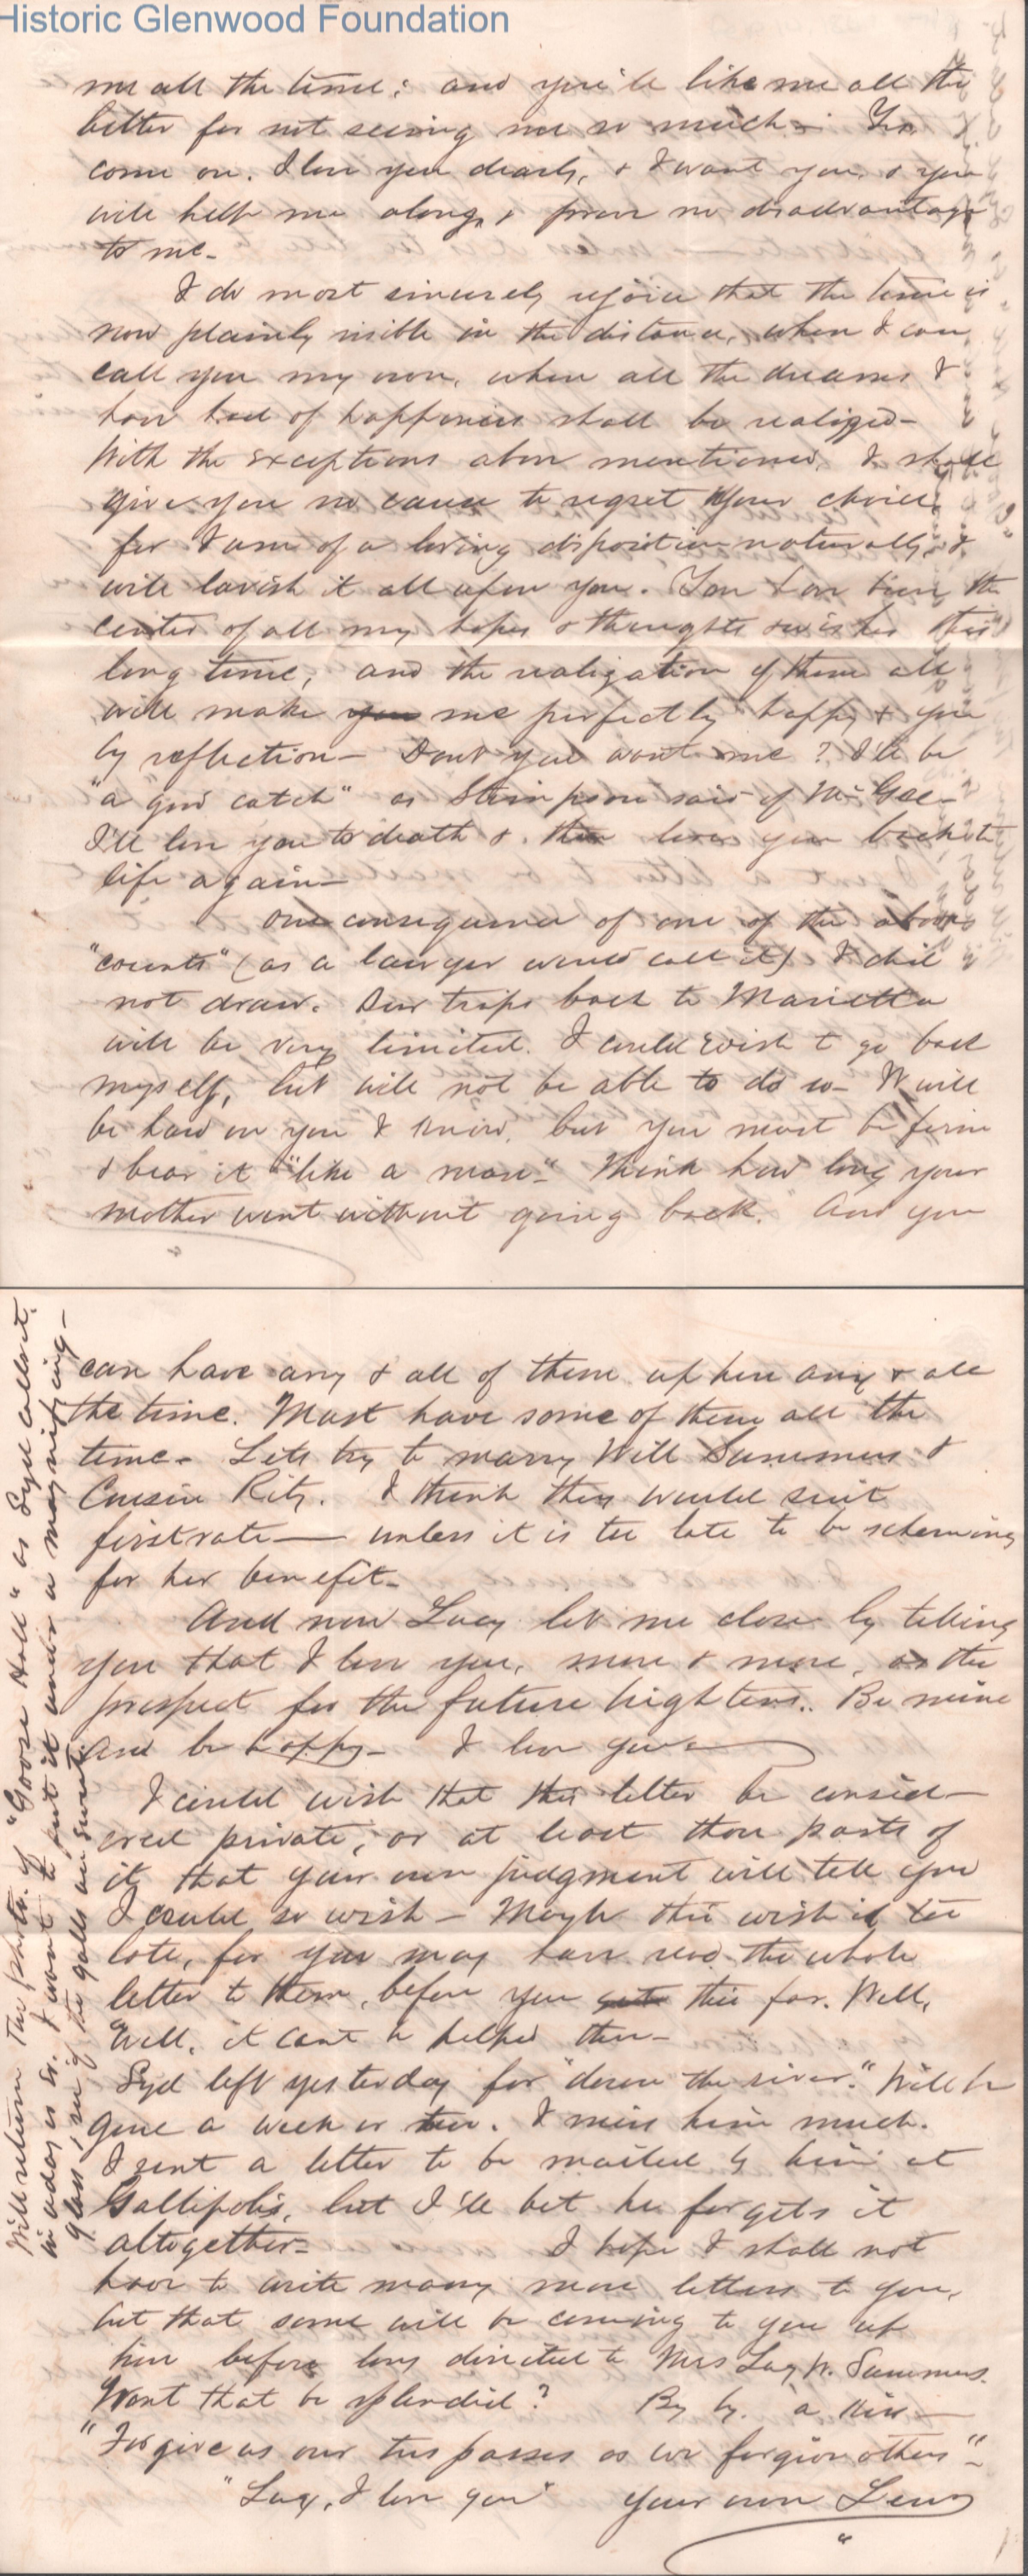 Historic Glenwood Foundation
me all the time; and you'll like me all the
better for not seeing me so much. Yes
come on. I love you dearly, & I want you, & you
will help me along, & prove no disadvantage
to me-
I do most sincerely rejoice that the time is
now plainly visible in the distance, when I can
call you my own, when all the dreams I
have had of happiness shall be realized-
With the exceptions above mentioned, I shall
give you no cause to regret your choice,
for I am of a loving disposition naturally, &
will lavish it all upon you. You have been the
center of all my hopes & thoughts & wishes this
long time, and the realization of them all
will make you me perfectly happy & you
by reflection- Dont you want me? I'll be
"a good catch" as Simpson said of Mc Gee-
I'll love you to death & then love you back to
life again-
One consequence of one of the above
"counts" (as a lawyer would call it) I did
not draw. Our trips back to Marietta
will be very limited. I could wish to go back
myself, but will not be able to do so- It will
be hard on you I know, but you must be firm
& bear it "like a man". Think how long your
mother went without going back. And you
can have any & all of them up here any & all
the time. Must have some of them all the
time- Lets try to marry Will Summers &
Cousin Kitty. I think they would suit
first rate- unless it is too late to be scheming
for her benefit-
And now Lucy let me close by telling
you that I love you, more & more, as the
prospect for the future brightens. Be mine
and be happy- I love you-
I could wish that this letter be consid-
ered private, or at least those parts of
it, that your own judgment will tell you
I could so wish- Maybe this wish is too
late, for you may have read the whole
letter to them, before you get this far. Well,
Well, it cant be helped then-
Syd left yesterday for "down the river." Will be
gone a week or two. I miss him much.
I sent a letter to be mailed by him at
Gallipolis, but I'll bet he forgets it
altogether- I hope I shall not
have to write many more letters to you,
but that some will be coming to you up
here before long directed to Mrs Lucy W. Summers.
Wont that be splendid? By by. a kiss-
"Forgive us our trespasses as we forgive others"-
"Lucy, I love you" your own Lewis
Will return the photo. of "Goose Hall" as Syd calls it,
in a day or so. I want to put it under a magnifying-
glass & see if the galls are sweet.